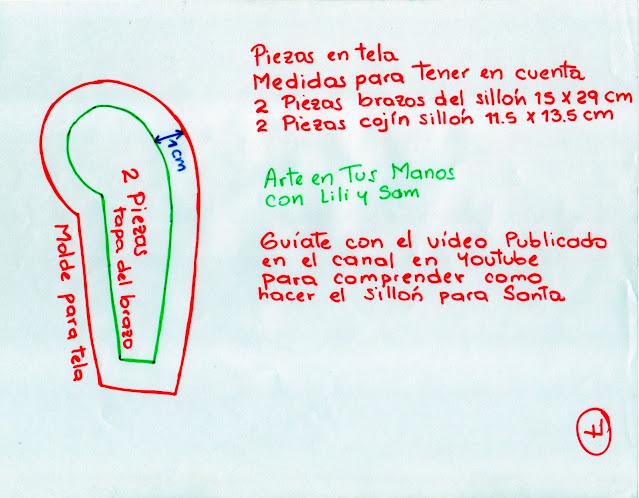 Piezas en tela
Medidas para Tener en cuenta
2 Piezas brazos del sillón 15 x 29 cm
2 Piezas cojín sillón 11.5 x 13.5 cm
Arte en Tus Manos
con Lili y Sam
Guíate con el vídeo Publicado
en el canal en Youtube
para comprender como
hacer el sillón para Santa
1 cm
2 Piezas
tapa del brazo
Molde para tela
7